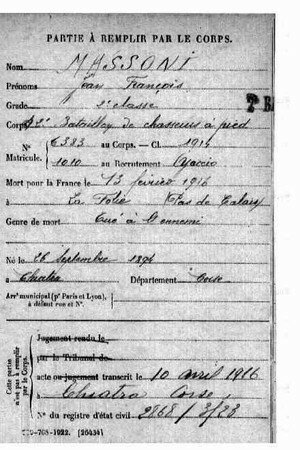 PARTIE À REMPLIR PAR LE CORPS.
Nom MASSONI
Prénoms Jean François
Grade 2e classe
Corps 2e Bataillon de chasseurs à pied
N° 6383 au Corps. — Cl. 1914
Matricule. 1010 au Recrutement Ajaccio
Mort pour la France le 13 février 1916
à La Folie (Pas de Calais)
Genre de mort Tué à l'ennemi
Né le 26 Septembre 1894
à Chiatra Département Corse
Arrt municipal (pr Paris et Lyon),
à défaut rue et N°.
Cette partie n'est pas à remplir par le Corps.
Jugement rendu le
par le Tribunal de
acte ou jugement transcrit le 10 avril 1916
à Chiatra Corse
N° du registre d'état civil 2868/3/23
-708-1922. [26434]